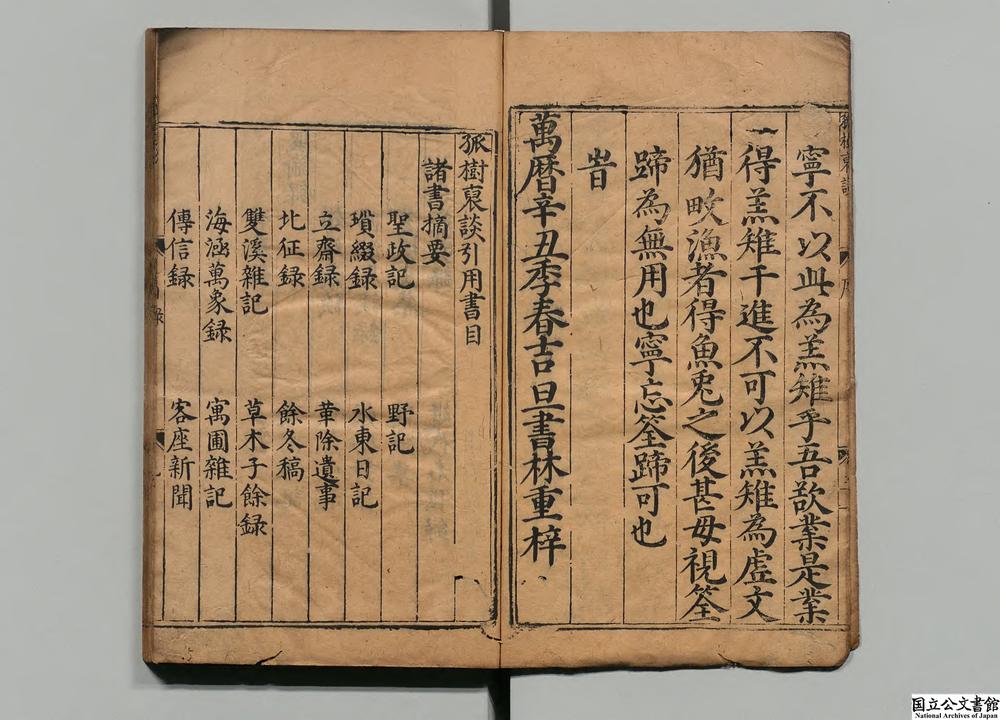 寧不以此為羔雉乎吾欲業是業
一得羔雉干進不可以羔雉為虛文
猶畋漁者得魚兎之後甚毋視筌
蹄為無用也寧忘筌蹄可也
旹
萬曆辛丑季春吉旦書林重梓
孤樹裒談引用書目
諸書摘要
聖政記 野記
瑣綴錄 水東日記
立齋錄 革除遺事
北征錄 餘冬稿
雙溪雜記 草木子餘錄
海涵萬象錄 寓圃雜記
傳信錄 客座新聞
国立公文書館
National Archives of Japan